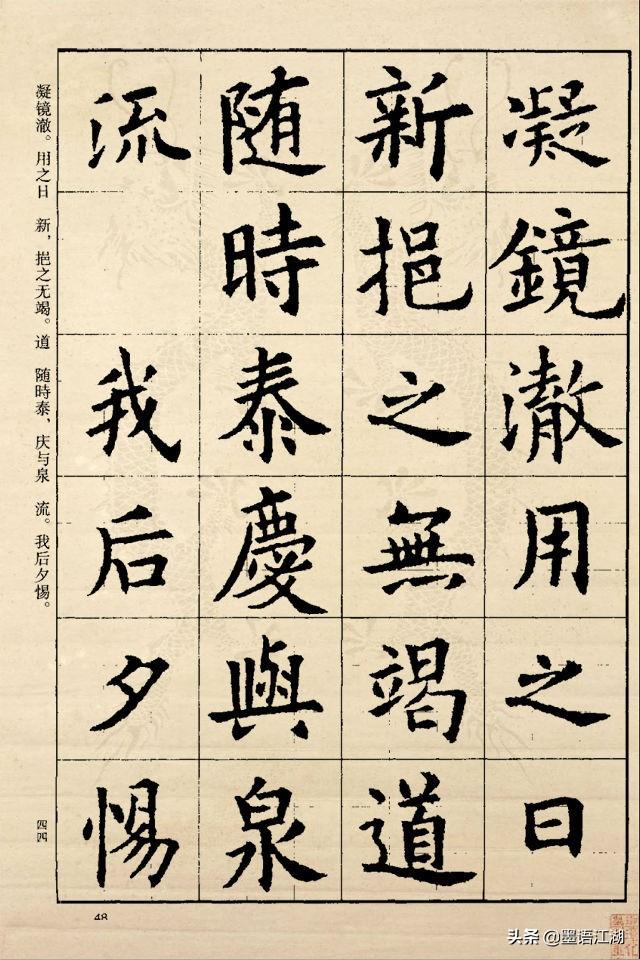 凝鏡澈用之日
新挹之無竭道
随時泰慶與泉
流 我后夕惕
凝镜澈。用之日 新，挹之无竭。道 随時泰，庆与泉 流。我后夕惕。
四四
48
头条 @墨语江湖